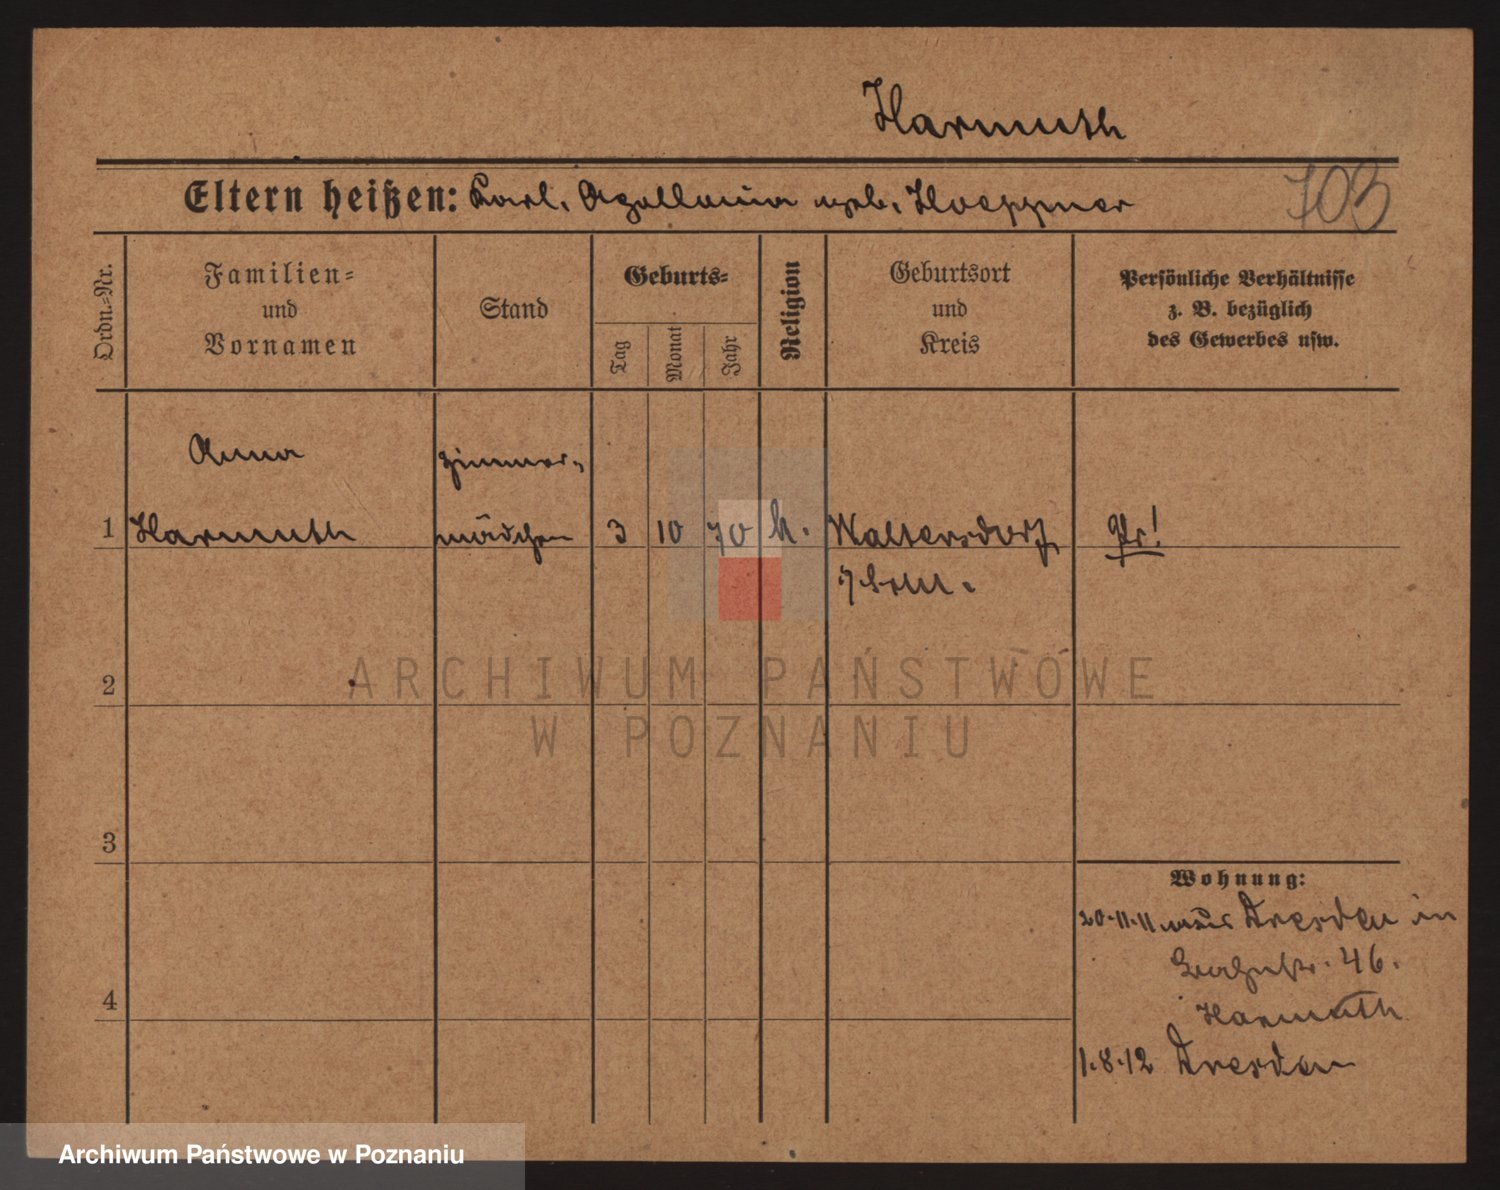 Harmuth
Eltern heißen: Karl, Apollonia geb. Hoeppner
703
Ordn.-Nr.
Familien-
und
Vornamen
Stand
Geburts-
Tag
Monat
Jahr
Religion
Geburtsort
und
Kreis
Persönliche Verhältnisse
z. B. bezüglich
des Gewerbes usw.
Anna
Zimmer-
1 Harmuth mädchen 3 10 70 k. Waltersdorf, Pr!
2
3
4
Wohnung:
20.11.11 aus Dresden in
46.
Harmuth
1.8.12 Dresden
ARCHIWUM PAŃSTWOWE
W POZNANIU
Archiwum Państwowe w Poznaniu